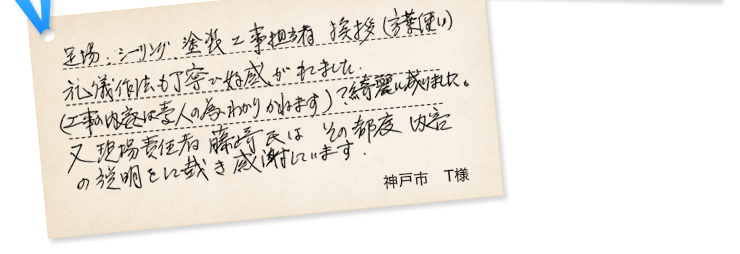 足場、シーリング、塗装工事担当者 挨拶(言葉使い)
礼儀作法も丁寧で好感がもてました。
(工事の内容は素人の為わかりかねます)で綺麗に成りました。
又現場責任者 藤崎氏は その都度 内容
の説明をして戴き感謝しています。
神戸市 T様